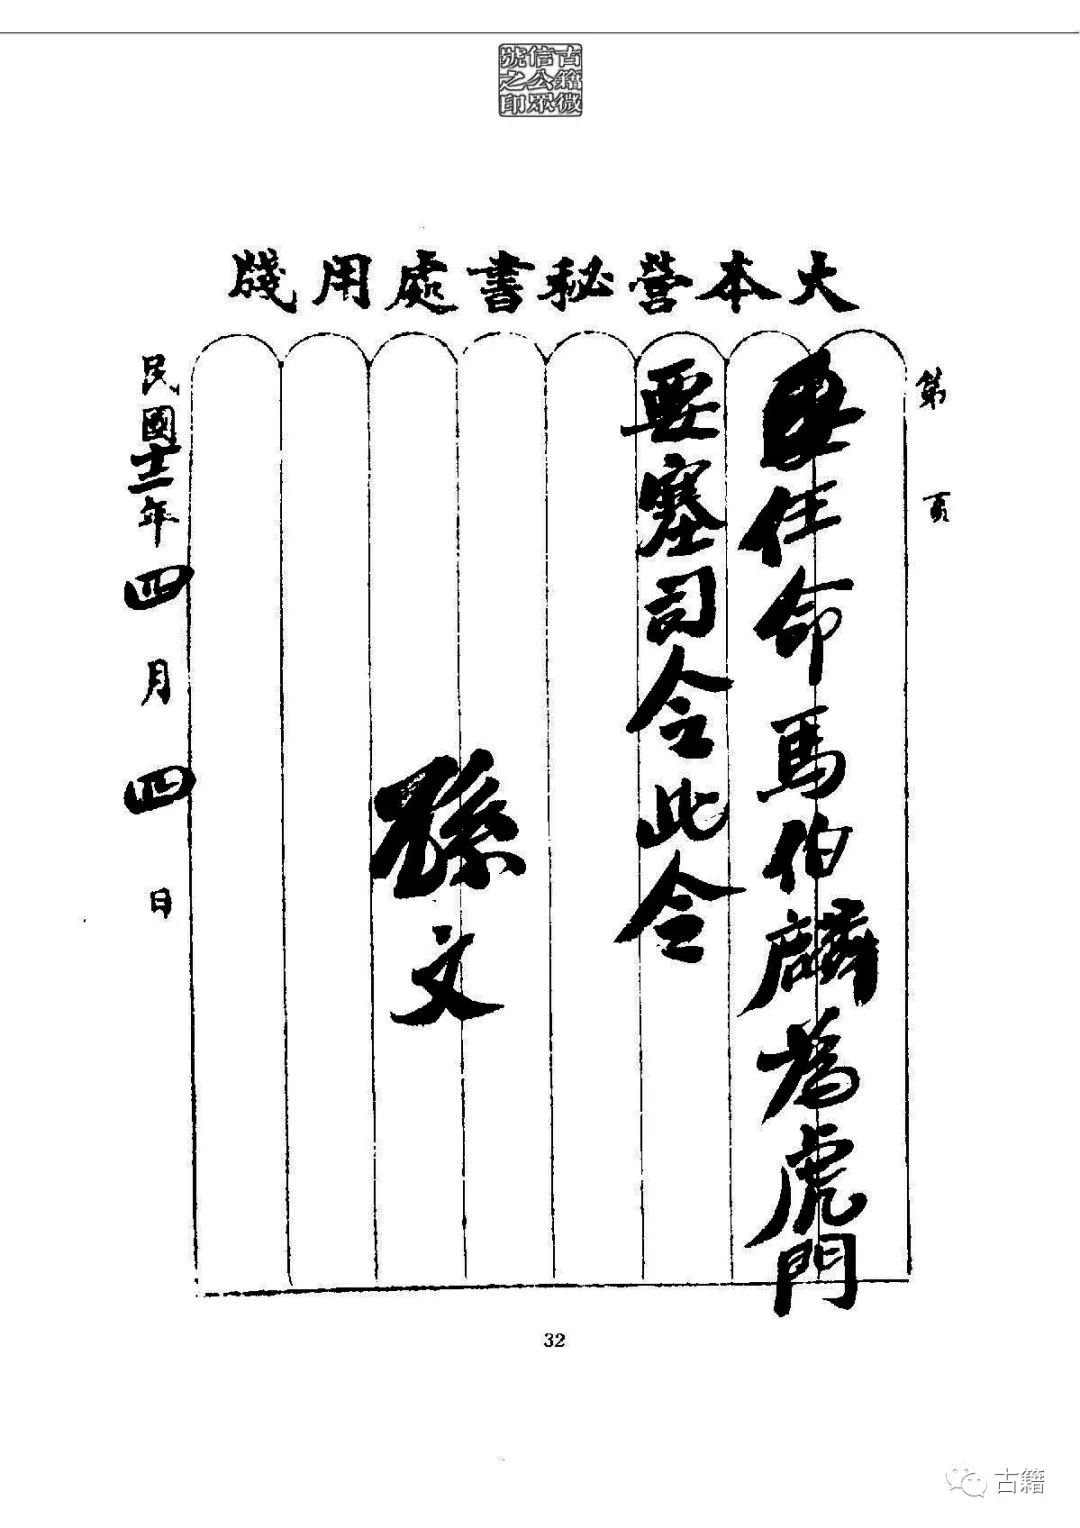 古籍微
信公眾
號之印
大本營秘書處用牋
第 頁
任命馬伯麟為虎門
要塞司令此令
孫文
民國十二年四月四日
32
古籍